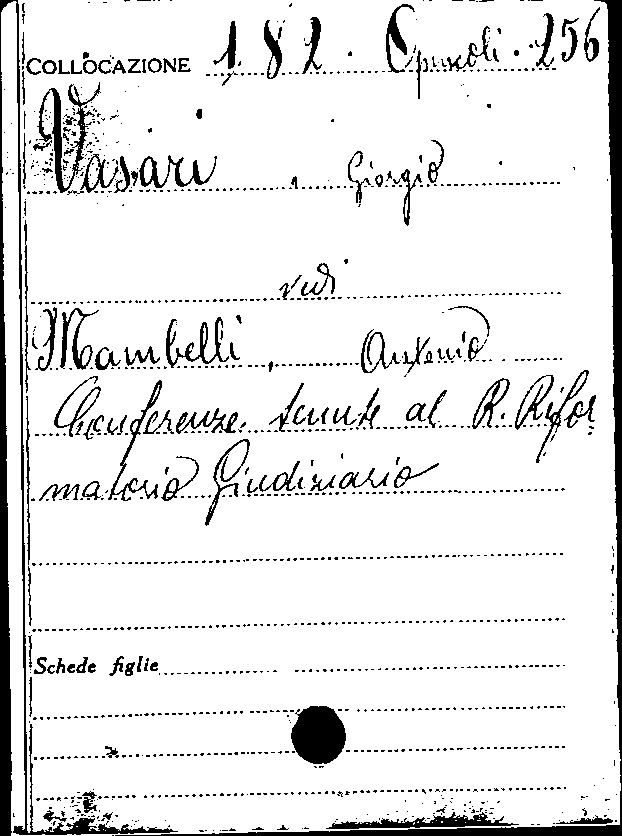 COLLOCAZIONE 182. Opuscoli. 256
Vasari, Giorgio
vedi
Mambelli, Antonio
Conferenze tenute al R. Rifor-
matorio Giudiziario
Schede figlie